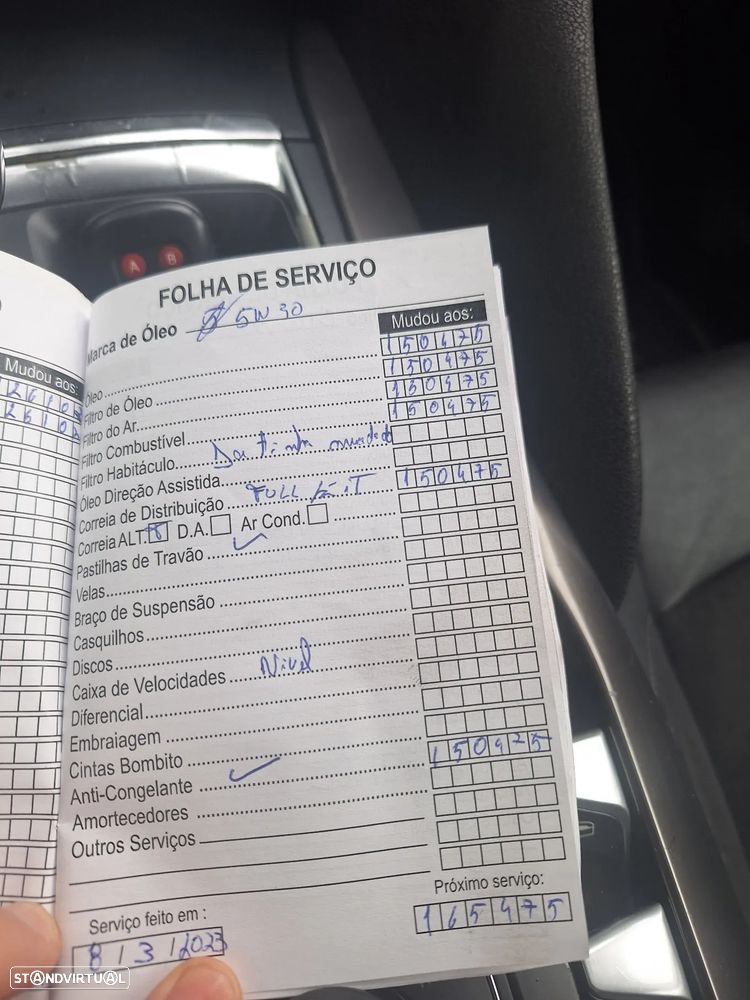 A B
FOLHA DE SERVIÇO
Marca de Óleo 5W30
Mudou aos:
Mudou aos:
Óleo 150475
Filtro de Óleo 150475
Filtro do Ar 150475
Filtro Combustível 150475
Filtro Habitáculo
Óleo Direção Assistida
Correia de Distribuição FULL KIT 150475
Correia ALT. D.A. Ar Cond.
Pastilhas de Travão ✓
Velas
Braço de Suspensão
Casquilhos
Discos
Caixa de Velocidades Nivel
Diferencial
Embraiagem
Cintas Bombito
Anti-Congelante ✓ 150475
Amortecedores
Outros Serviços
Próximo serviço:
165475
Serviço feito em :
8/3/2023
STANDVIRTUAL